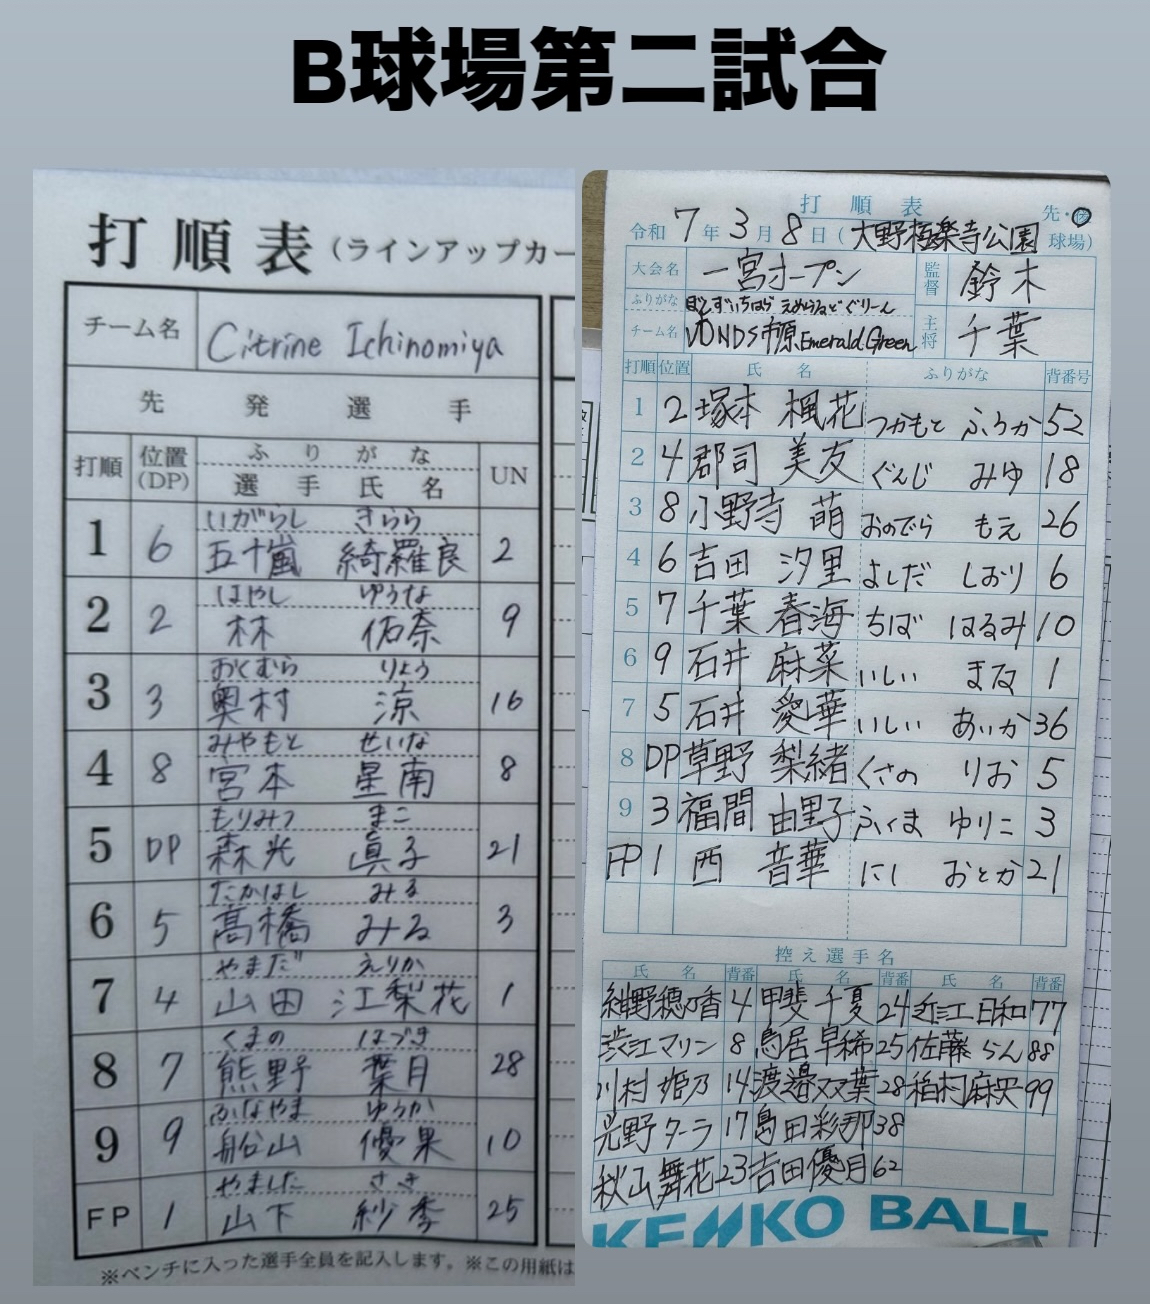 B球場第二試合
打順表(ラインアップカー
チーム名 Citrine Ichinomiya
先発選手
打順 位置(DP) ふりがな 選手氏名 UN
いがらし きらら
1 6 五十嵐 綺羅良 2
はやし ゆうな
2 2 林 佑奈 9
おくむら りょう
3 3 奥村 涼 16
みやもと せいな
4 8 宮本 星南 8
もりみつ まこ
5 DP 森光 眞子 21
たかはし みる
6 5 髙橋 みる 3
やまだ えりか
7 4 山田 江梨花 1
くまの はづき
8 7 熊野 葉月 28
ふなやま ゆうか
9 9 船山 優果 10
やました さき
FP 1 山下 紗季 25
※ベンチに入った選手全員を記入します。※この用紙は
打順表
先・後
令和 7年 3月 8日 (大野極楽寺公園 球場)
大会名 一宮オープン 監督 鈴木
ふりがな ぼんずいちはら えめらるどぐりーん
チーム名 VONDS市原 Emerald Green 主将 千葉
打順 位置 氏名 ふりがな 背番号
1 2 塚本 楓花 つかもと ふうか 52
2 4 郡司 美友 ぐんじ みゆ 18
3 8 小野寺 萌 おのでら もえ 26
4 6 吉田 汐里 よしだ しおり 6
5 7 千葉 春海 ちば はるみ 10
6 9 石井 麻菜 いしい まな 1
7 5 石井 愛華 いしい あいか 36
8 DP 草野 梨緒 くさの りお 5
9 3 福間 由里子 ふくま ゆりこ 3
FP 1 西 音華 にし おとか 21
控え選手名
氏名 背番 氏名 背番 氏名 背番
紺野穂乃香 4 甲斐 千夏 24 近江 日和 77
渋江マリン 8 鳥居 早稀 25 佐藤 らん 88
川村 姫乃 14 渡邉双葉 28 稲村麻央 99
光野 ターラ 17 島田彩那 38
秋山 舞花 23 吉田優月 62
KENKO BALL